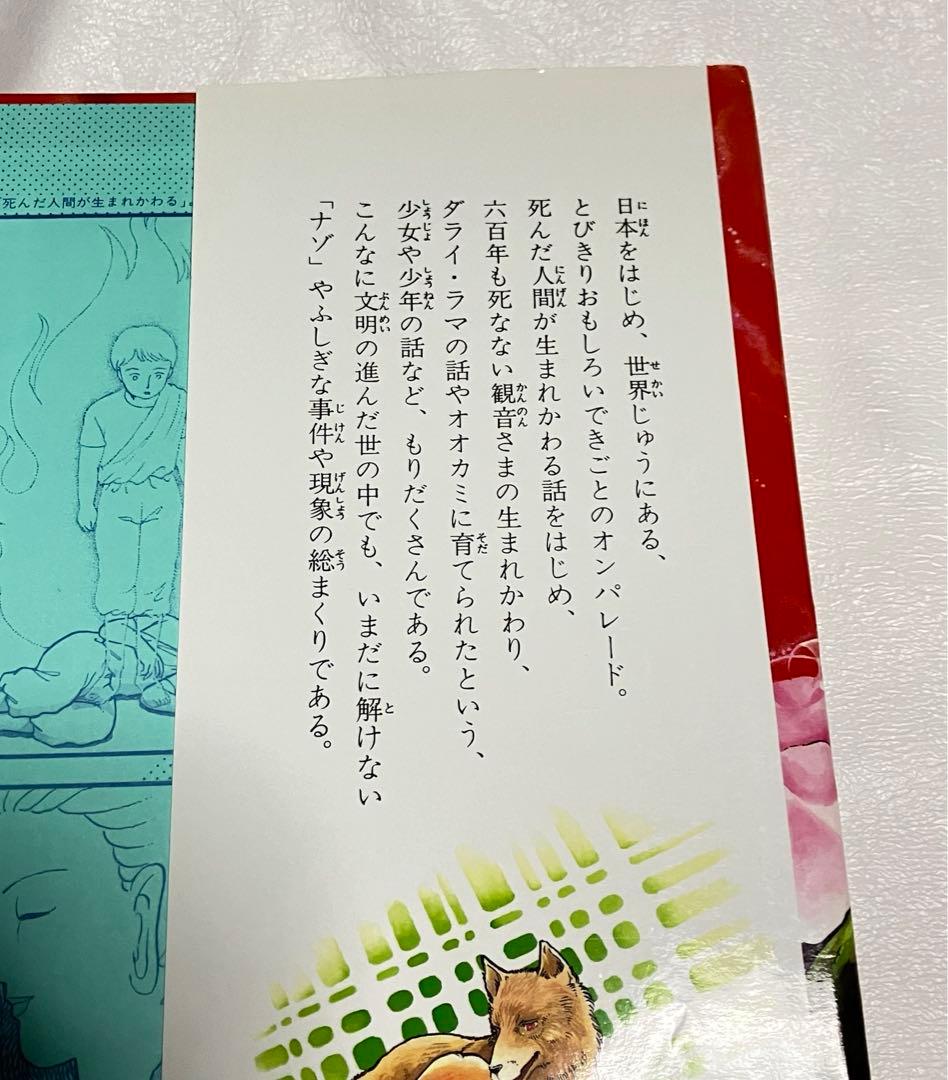 日本をはじめ、世界じゅうにある、
とびきりおもしろいできごとのオンパレード。
死んだ人間が生まれかわる話をはじめ、
六百年も死なない観音さまの生まれかわり、
ダライ・ラマの話やオオカミに育てられたという、
少女や少年の話など、もりだくさんである。
こんなに文明の進んだ世の中でも、いまだに解けない
「ナゾ」やふしぎな事件や現象の総まくりである。
「死んだ人間が生まれかわる」